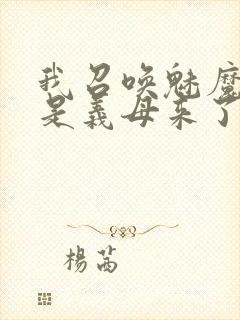 我召唤魅魔
是義母来了
楊茜